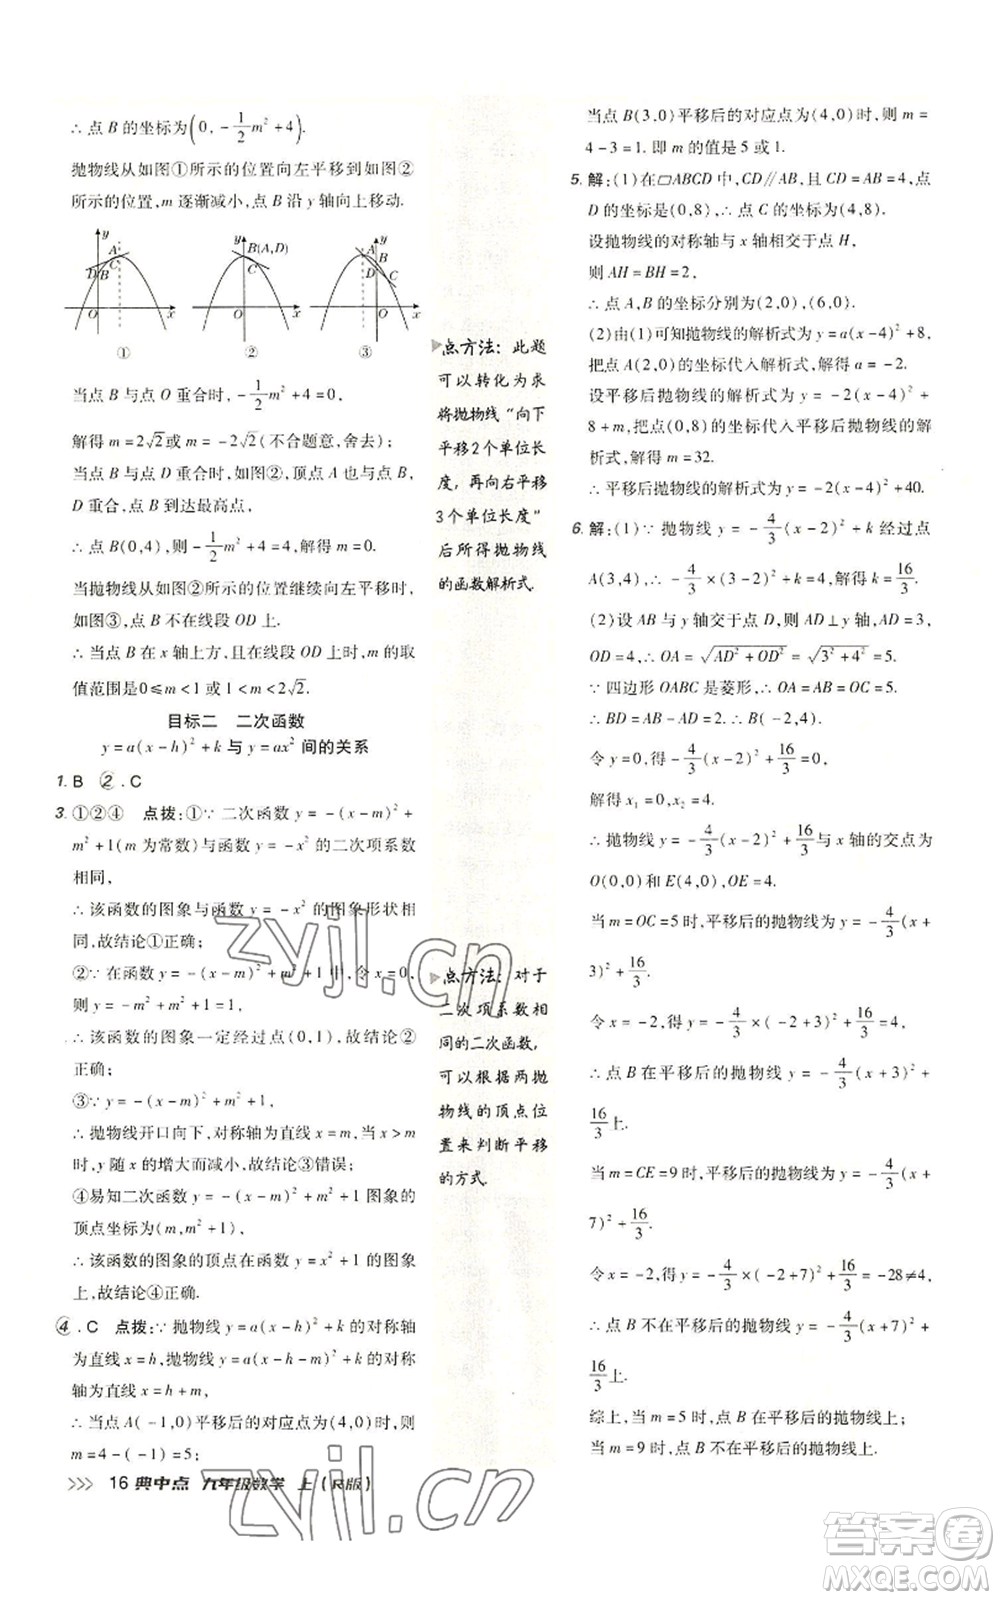 ∴点 B 的坐标为(0, -1/2m²+4).
抛物线从如图①所示的位置向左平移到如图②
所示的位置, m 逐渐减小, 点 B 沿 y 轴向上移动.
y A C D B O x
①
y B(A,D) C O x
②
A y B D C O x
③
当点 B 与点 O 重合时, -1/2m²+4=0,
解得 m=2√2或 m=-2√2(不合题意,舍去);
当点 B 与点 D 重合时,如图②,顶点 A 也与点 B,
D 重合,点 B 到达最高点,
∴点 B(0,4),则-1/2m²+4=4,解得 m=0.
当抛物线从如图②所示的位置继续向左平移时,
如图③,点 B 不在线段 OD 上.
∴当点 B 在 x 轴上方,且在线段 OD 上时,m 的取
值范围是0≤m<1 或 1<m<2√2.
目标二 二次函数
y=a(x-h)²+k 与 y=ax² 间的关系
1. B 2. C
3. ①②④ 点拨:①∵二次函数 y=-(x-m)²+
m²+1(m 为常数)与函数 y=-x² 的二次项系数
相同,
∴该函数的图象与函数 y=-x² 的图象形状相
同,故结论①正确;
②∵在函数 y=-(x-m)²+m²+1 中,令 x=0,
则 y=-m²+m²+1=1,
∴该函数的图象一定经过点(0,1),故结论②
正确;
③∵y=-(x-m)²+m²+1,
∴抛物线开口向下,对称轴为直线 x=m,当 x>m
时,y 随 x 的增大而减小,故结论③错误;
④易知二次函数 y=-(x-m)²+m²+1 图象的
顶点坐标为(m,m²+1),
∴该函数的图象的顶点在函数 y=x²+1 的图象
上,故结论④正确.
4. C 点拨:∵抛物线 y=a(x-h)²+k 的对称轴
为直线 x=h,抛物线 y=a(x-h-m)²+k 的对称
轴为直线 x=h+m,
∴当点 A(-1,0)平移后的对应点为(4,0)时,则
m=4-(-1)=5;
点方法:此题
可以转化为求
将抛物线“向下
平移2个单位长
度,再向右平移
3个单位长度”
后所得抛物线
的函数解析式.
点方法:对于
二次项系数相
同的二次函数,
可以根据两抛
物线的顶点位
置来判断平移
的方式.
当点 B(3,0)平移后的对应点为(4,0)时,则 m=
4-3=1. 即 m 的值是 5 或 1.
5. 解:(1)在▱ABCD 中,CD∥AB,且 CD=AB=4,点
D 的坐标是(0,8),∴点 C 的坐标为(4,8).
设抛物线的对称轴与 x 轴相交于点 H,
则 AH=BH=2,
∴点 A,B 的坐标分别为(2,0),(6,0).
(2)由(1)可知抛物线的解析式为 y=a(x-4)²+8,
把点 A(2,0)的坐标代入解析式,解得 a=-2.
设平移后抛物线的解析式为 y=-2(x-4)²+
8+m,把点(0,8)的坐标代入平移后抛物线的解
析式,解得 m=32.
∴平移后抛物线的解析式为 y=-2(x-4)²+40.
6. 解:(1)∵抛物线 y=-4/3(x-2)²+k 经过点
A(3,4),∴-4/3×(3-2)²+k=4,解得 k=16/3.
(2)设 AB 与 y 轴交于点 D,则 AD⊥y 轴,AD=3,
OD=4,∴OA=√(AD²+OD²)=√(3²+4²)=5.
∵四边形 OABC 是菱形,∴OA=AB=OC=5,
∴BD=AB-AD=2. ∴B(-2,4).
令 y=0,得-4/3(x-2)²+16/3=0,
解得 x₁=0,x₂=4.
∴抛物线 y=-4/3(x-2)²+16/3与 x 轴的交点为
O(0,0)和 E(4,0),OE=4.
当 m=OC=5 时,平移后的抛物线为 y=-4/3(x+
3)²+16/3,
令 x=-2,得 y=-4/3×(-2+3)²+16/3=4,
∴点 B 在平移后的抛物线 y=-4/3(x+3)²+
16/3上.
当 m=CE=9 时,平移后的抛物线为 y=-4/3(x+
7)²+16/3,
令 x=-2,得 y=-4/3×(-2+7)²+16/3=-28≠4,
∴点 B 不在平移后的抛物线 y=-4/3(x+7)²+
16/3上.
综上,当 m=5 时,点 B 在平移后的抛物线上;
当 m=9 时,点 B 不在平移后的抛物线上.
16 典中点 九年级数学 上(R版)
zyjl.cn
zyjl.cn
答案卷
MXQE.COM